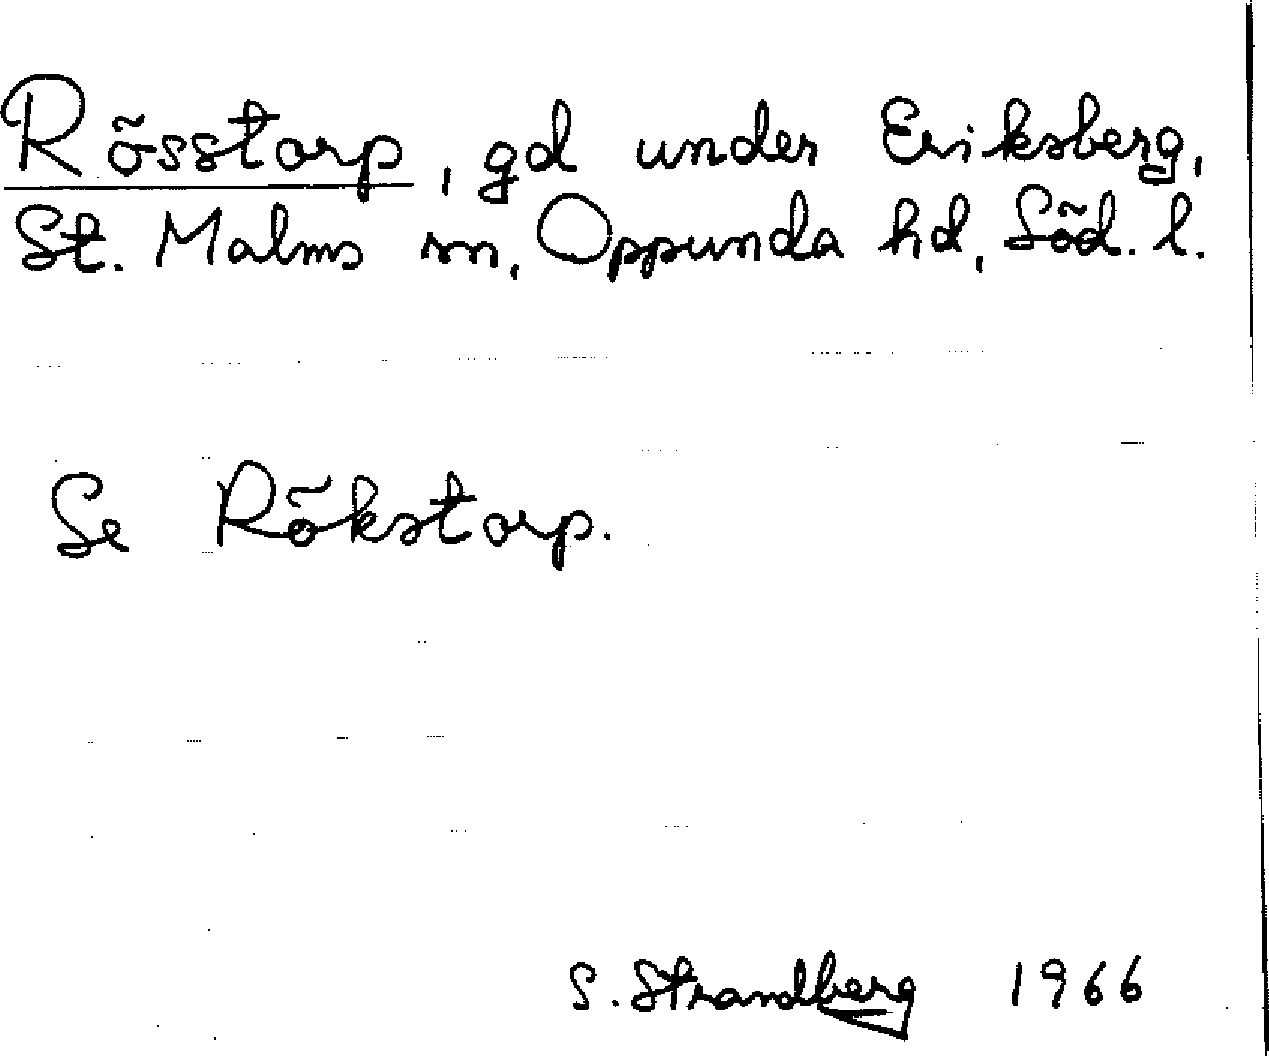 Rösstorp, gd under Eriksberg,
St. Malms sn, Oppunda hd, Söd. l.
Se Rökstorp.
S. Strandberg 1966